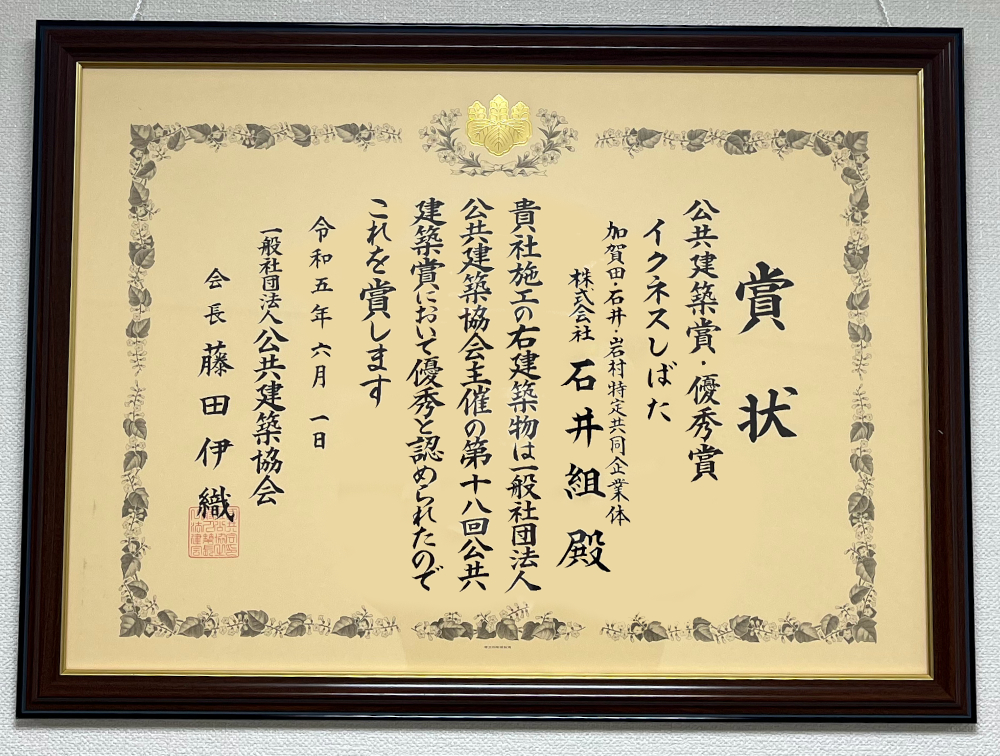 賞状
公共建築賞・優秀賞
イクネスしばた
加賀田・石井・岩村特定共同企業体
株式会社 石井組 殿
貴社施工の右建築物は一般社団法人
公共建築協会主催の第十八回公共
建築賞において優秀と認められたので
これを賞します
令和五年六月一日
一般社団法人 公共建築協会
会長 藤田伊織